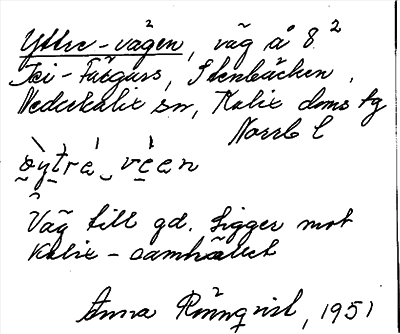 Yttre-vägen, väg å 8 2
Tei-Färgars, Stenbäcken,
Nederkalix sn, Kalix doms tg
Norrb l
öytrè vèen
Väg till gd. Ligger mot
Kalix-samhället
Anna Rönnqvist, 1951